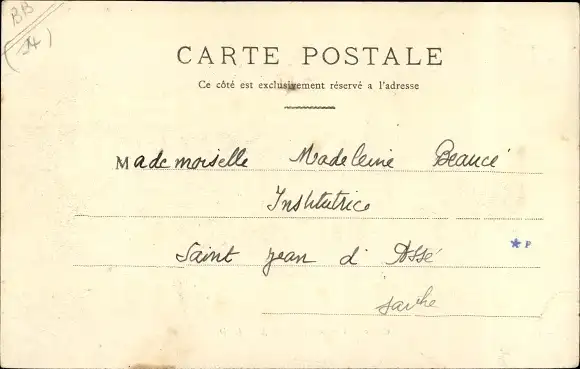 BB
(54)
CARTE POSTALE
Ce côté est exclusivement réservé a l'adresse
Mademoiselle Madeleine Beaucé
Institutrice
Saint jean d'Assé
★P
Sarthe